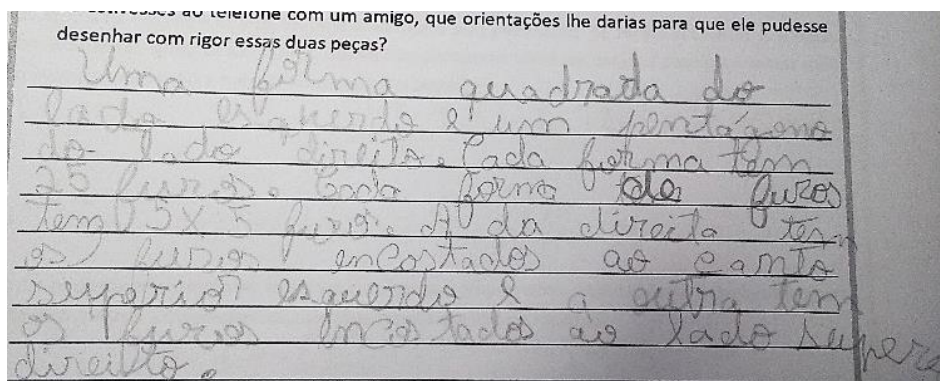 ao telefone com um amigo, que orientações lhe darias para que ele pudesse
desenhar com rigor essas duas peças?
Uma forma quadrada do
lado esquerdo e um pentágono
do lado direito. Cada forma tem
25 furos. Cada forma de furos
tem 5x5 furos. A da direita tem
os furos encostados ao canto
superior esquerdo e a outra tem
os furos encostados ao lado super
direito.